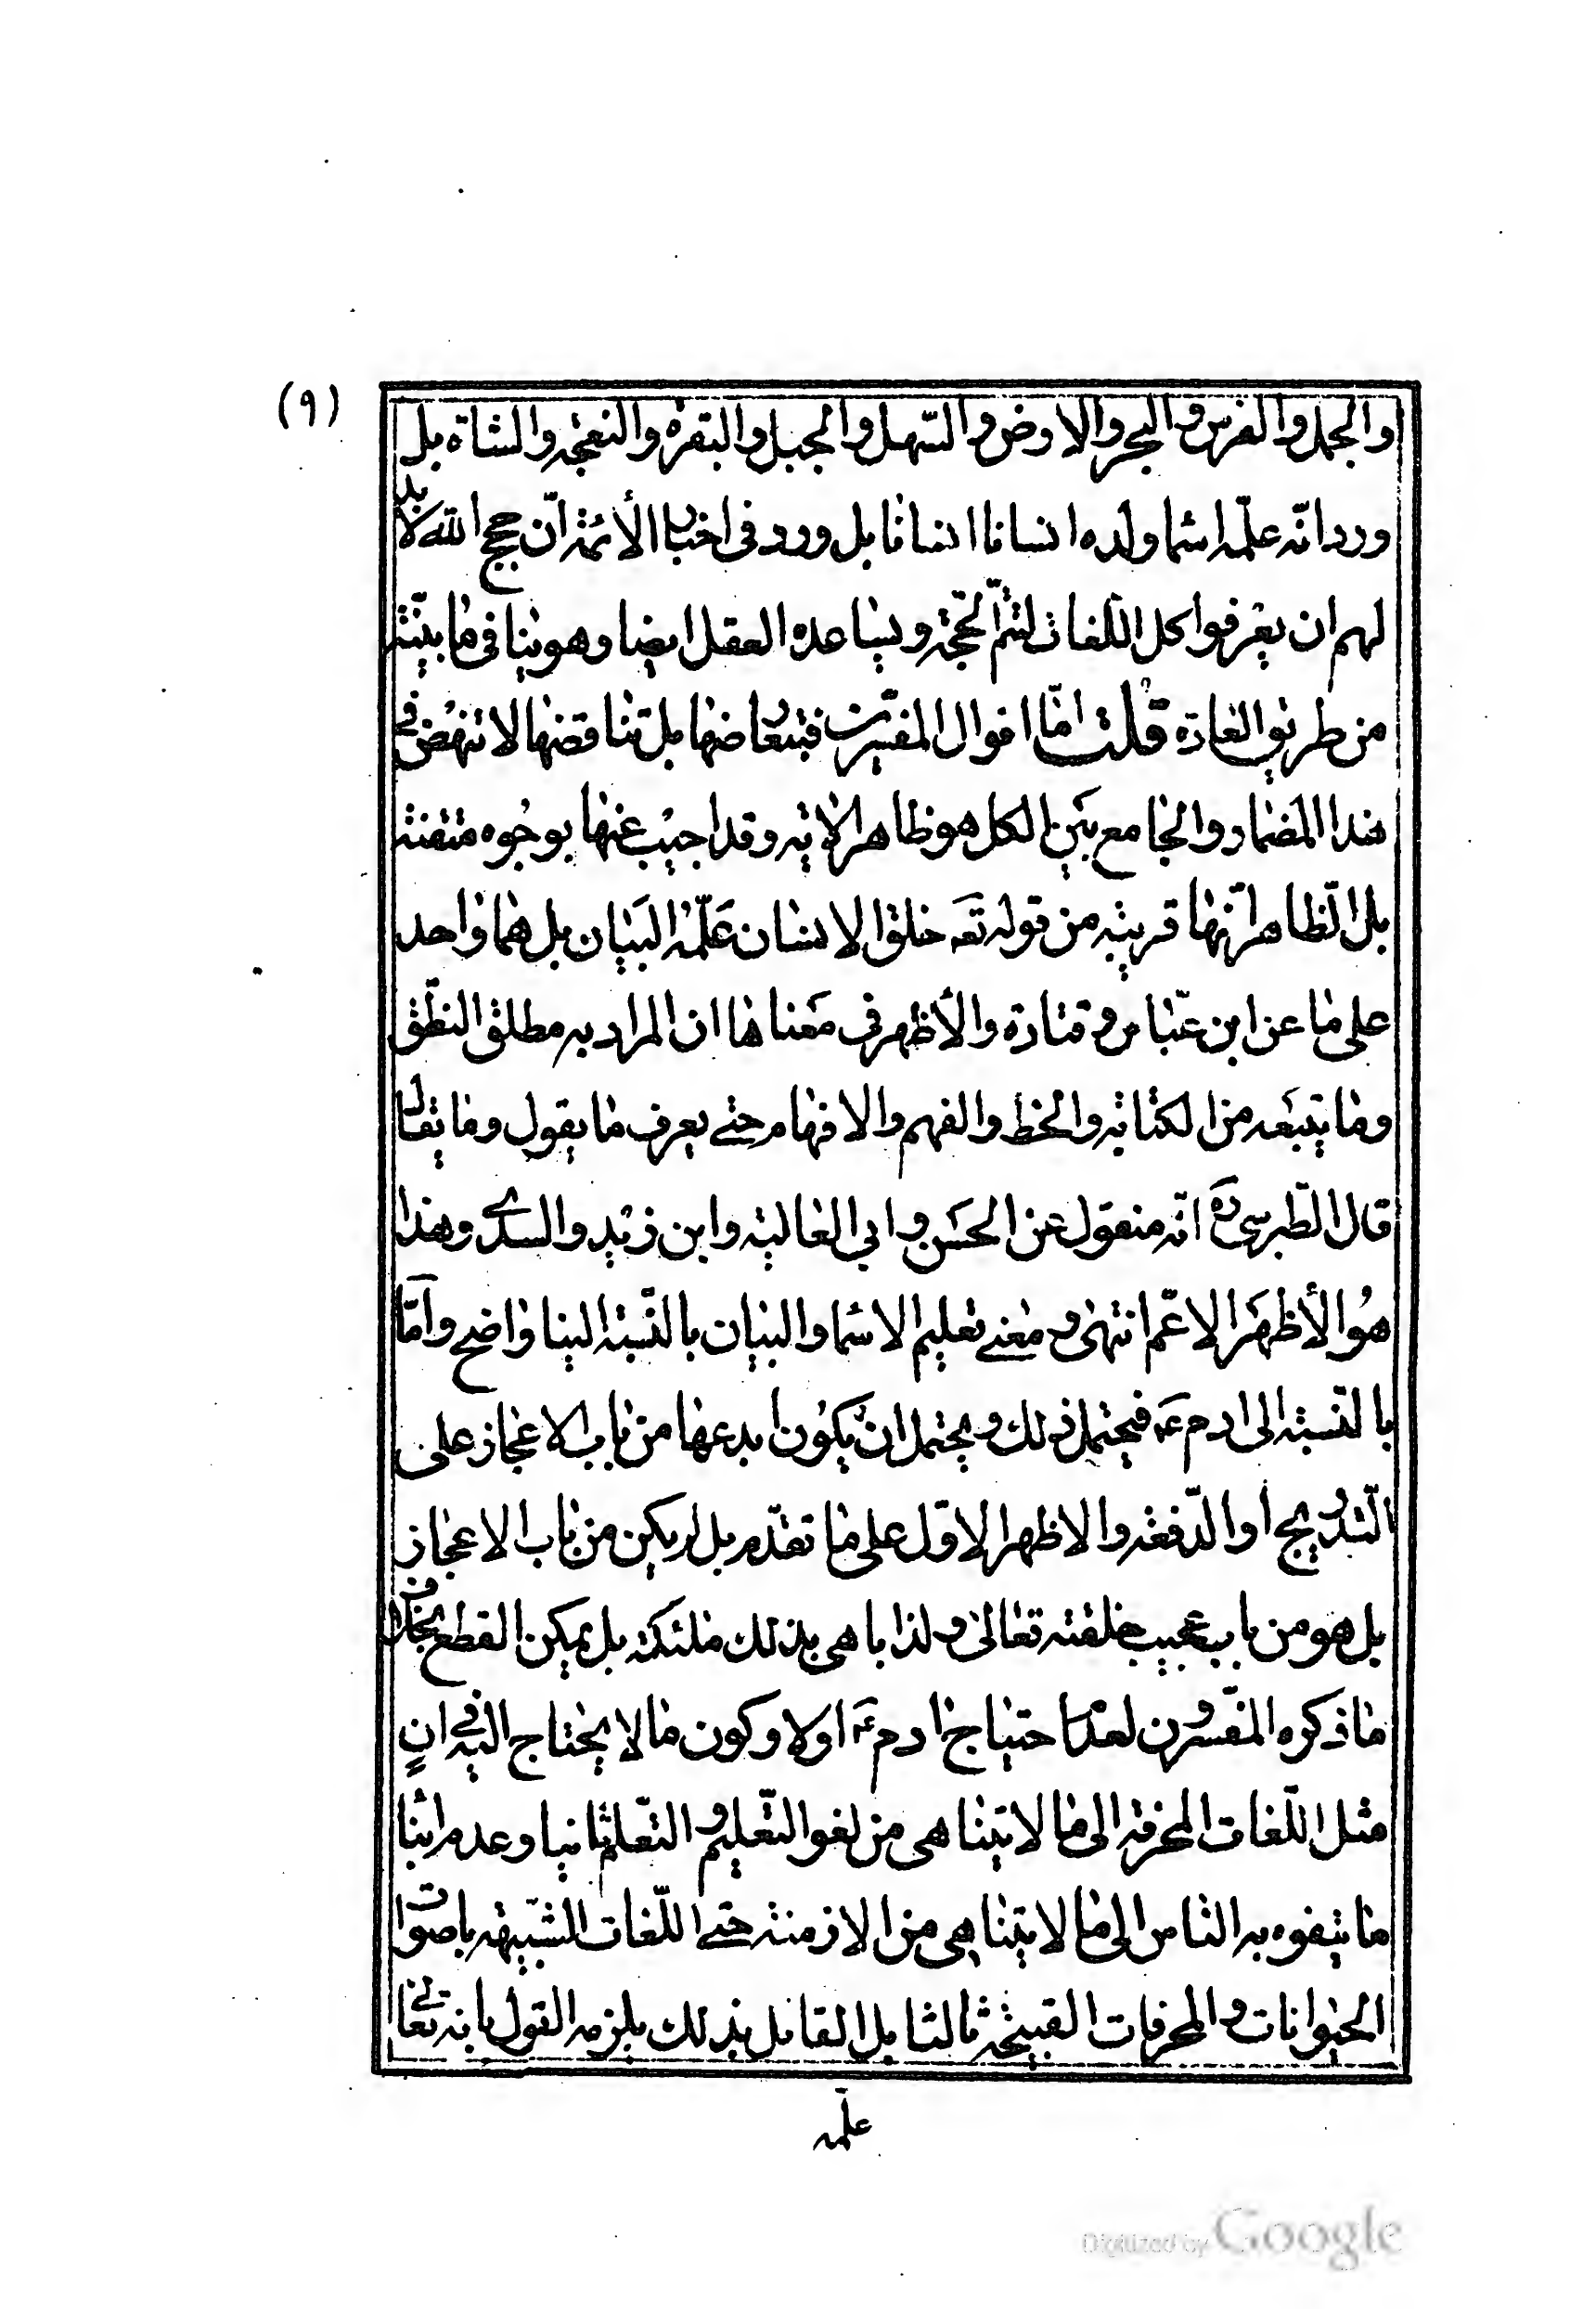 (٩)
والجمل والفرس والبحر والارض والسّهل والجبل والبقرة والنعجة والشاة بل
ورد انّه علّمه اسماء ولده انسانا انسانا بل ورد فى اخبار الأئمّة انّ حجج الله لا بد
لهم ان يعرفوا كل اللّغات لتتمّ الحجّة ويساعده العقل ايضا وهو ينافى ما بيّنته
من طريق العادة قلت امّا اقوال المفسّرين فبتعارضها بل تناقضها لا تنهض فى
هذا المضمار والجامع بين الكل هو ظاهر الاية وقد اجيب عنها بوجوه متفننة
بل الظّاهر انّها قريبة من قوله تعه خلق الانسان علّمه البيان بل هما واحد
على ما عن ابن عبّاس وقتادة والأظهر فى معناها ان المراد به مطلق النطق
وما يتبعه من الكتابة والخط والفهم والافهام حتى يعرف ما يقول وما يقال
قال الطّبرسى ره انّه منقول عن الحسن وابى العالية وابن زيد والسدى وهذا
هو الأظهر الاعّم انتهى ومعنى تعليم الاسماء والبيان بالنّسبة الينا واضح وامّا
بالنّسبة الى ادم ع فيحتمل ذلك ويحتمل ان يكون ابدعها من باب الاعجاز على
التّدريج او الدّفعة والاظهر الاوّل على ما تقدّم بل لم يكن من باب الاعجاز
بل هو من باب عجيب خلقته تعالى ولذا باهى بذلك ملئكة بل يمكن القطع بخلاف
ما ذكره المفسّرون لعدم احتياج ادم ع اولا وكون ما لا يحتاج اليه فى ان
مثل اللّغات المحرفة الى ما لا يتناهى من لغو التّعليم والتّعلم ثانيا وعدم اثبات
ما يتفوه به الناس الى ما لا يتناهى من الازمنة حتى اللّغات الشّبيهة باصوات
الحيوانات والمحرفات القبيحة ثالثا بل القائل بذلك يلزمه القول بانه تعالى
علّمه
Digitized by Google